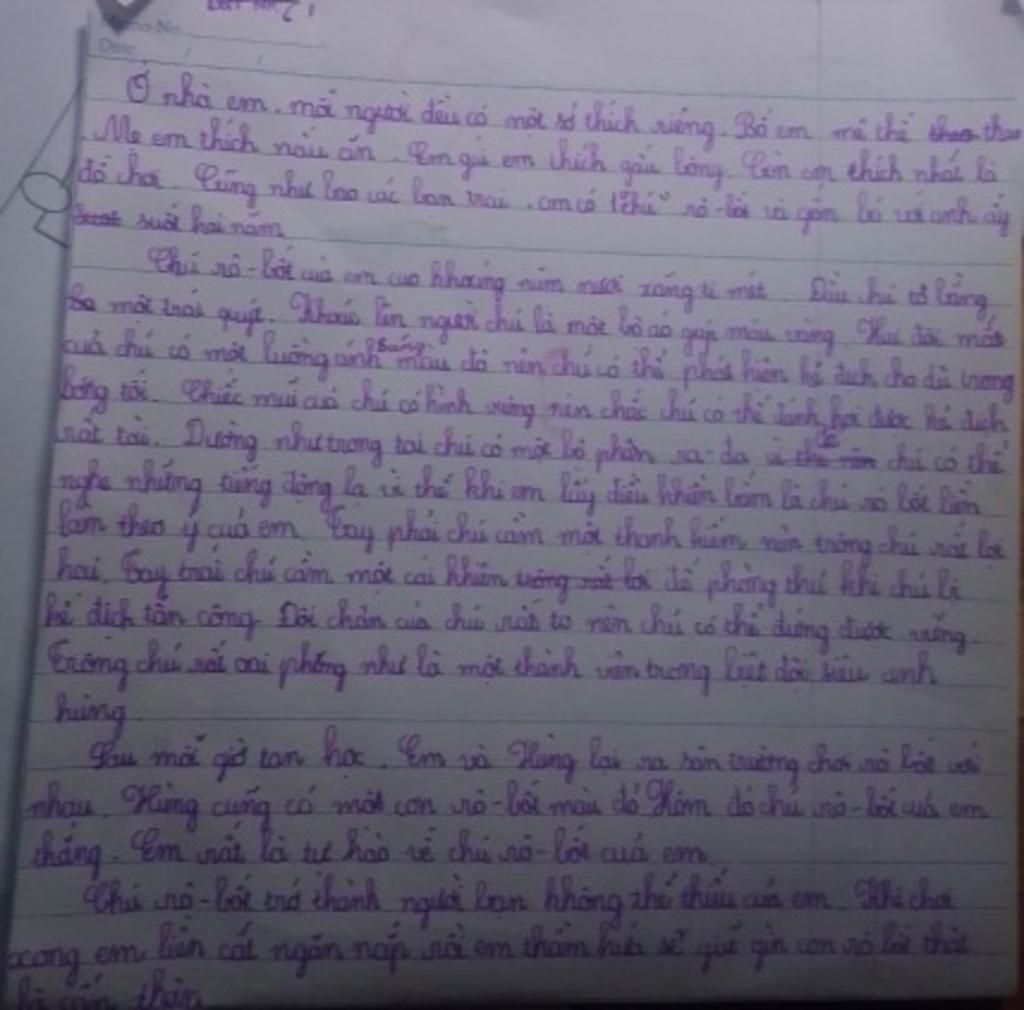 Date
Ở nhà em, mỗi người đều có một sở thích riêng. Bố em mê thể thao
Mẹ em thích nấu ăn. Em gái em thích gấu bông. Còn em thích nhất là
đồ chơi. Cũng như bao các bạn trai, em có 1 "chú" rô-bốt và gắn bó với anh ấy
suốt hai năm
Chú rô-bốt của em cao khoảng năm mươi xăng ti mét. Đầu chú to bằng
một trái quýt. Khoác lên người chú là một bộ áo giáp màu vàng. Hai đôi mắt
của chú có một luồng ánh sáng màu đỏ nên chú có thể phát hiện kẻ địch cho dù trong
bóng tối. Chiếc mũi của chú có hình vuông nên chắc chú có thể đánh hơi được kẻ địch
rất tài. Dường như trong tai chú có một bộ phận ra-đa vì để chú có thể
nghe những tiếng động lạ vì thế khi em lấy điều khiển bấm là chú rô bốt liền
làm theo ý của em. Tay phải chú cầm một thanh kiếm nên trông chú rất lợi
hại. Tay trái chú cầm một cái khiên để phòng thủ khi chú bị
kẻ địch tấn công. Đôi chân của chú rất to nên chú có thể đứng được vững.
Trông chú rất oai phong như là một thành viên trong biệt đội siêu anh
hùng.
Sau mỗi giờ tan học. Em và Hùng lại ra sân trường chơi rô bốt với
nhau. Hùng cũng có một con rô-bốt màu đỏ. Hôm đó chú rô-bốt của em
thắng. Em rất là tự hào về chú rô-bốt của em.
Chú rô-bốt trở thành người bạn không thể thiếu của em. Khi chơi
xong em liền cất ngăn nắp rồi em thầm hứa sẽ giữ gìn con rô bốt thật
là cẩn thận